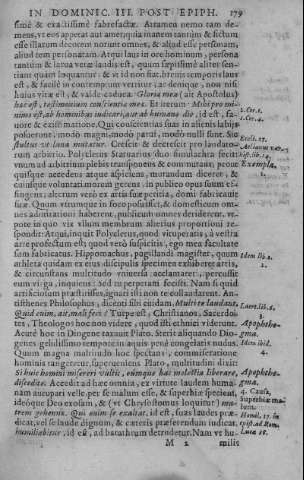 IN DOMINIC. III. POST EPIPH. 179
simè & exactissimè fabrefactæ. Attamen nemo tam de-
mens, vt eos appetat aut amet, quia manem tantùm & fictum
esse illarum decorem norunt omnes, & aliud esse personam,
aliud tem personatam. Atqui laus in ore hominum, persona
tantùm & larua veræ laudis est, quùm sæpissimè aliter sen-
tiant quàm loquuntur: & vt id non fiat, breuis temporis laus
est, & facilè in contemptum vertitur: ac denique, non nisi
huius vitæ est, & valde caduca: Gloria mea (ait Apostolus)
hæc est, testimonium conscientiæ meæ. Et iterum: Mihi pro mi-
nimo est, ab hominibus iudicari, aut ab humano die, id est, fa-
uore & existimatione. Qui conscientias suas in alienis labijs
posuerunt, modò magni, modò parui, modò nulli sunt. Sic
stultus vt luna mutatur. Crescit & decrescit pro laudato-
rum arbitrio. Polycletus Statuarius duo simulachra fecit:
vnum ad arbitrium plebis transponens & commutans, prout
quisque accedens atque aspiciens, morandum diceret, &
cuiusque voluntati morem gerens, in publico opus suum ef-
fingens; alterum verò ex artis suæ peritia, domi fabricatus
fuit. Quùm vtrumque in foco posuisset, & domesticum om-
nes admirationi haberent, publicum omnes deriderent, ve-
pote in quo vix vllum membrum alterius proportioni re-
spondet: Atqui, inquit Polycletus, quod vituperatis, à vestra
arte profectum est; quod verò suspicitis, ego mea facultate
sum fabricatus. Hippomachus, pugillandi magister, quum
athleta quidam ex eius disciplinis specimen exhiberet artis,
& circunstans multitudo vniuersa acclamaret, percussit
eum virga, inquiens: Sed tu perperam fecisti. Nam si quid
artificiosum præstitisses, ignari isti non te collaudarent. An-
tisthenes Philosophus, dicenti sibi cuidam, Multi te laudant,
Quid enim, ait, mali feci? Turpe est, Christianos, Sacerdo-
tes, Theologos hoc non videre, quod isti ethnici viderunt.
Acutè hoc in Diogene taxauit Plato. Steriit aliquando Dio-
genes gelidissimo tempore in aquis penè congelatis nudus.
Quem magna multitudo hoc spectans, commiseratione
hominis tangeretur, superueniens Plato, multitudini dixit:
Si huic homini misereri vultis, eumque hac molestia liberare,
discedite. Accedit ad hæc omnia, ex virtute laudem huma-
nam aucupari velle, per se malum esse, & superbiæ speciem,
ideóque Deo exosam, & (vt Chrysostomus loquitur) ma-
trem gehennæ. Qui enim se exaltat, id est, suas laudes præ-
dicat, vel se laude dignum, & cæteris præferendum iudicat,
humiliabitur, id est, ad barathrum detrudetur. Nam vt hu-
M 2 milis
2. Cor. 1.
1. Cor. 4.
Eccli. 27.
Exempla.
1.
Idem lib. 2.
2.
Laert. lib. 6.
3.
Apophtheg-
ma.
Idem ibid.
4.
Apophtheg-
ma.
4. Causa,
Superbiæ ma-
lum.
Luca 18.